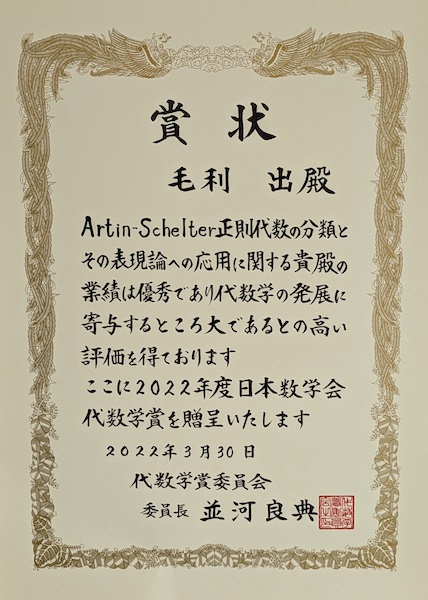 賞状
毛利 出殿
Artin-Schelter正則代数の分類と
その表現論への応用に関する貴殿の
業績は優秀であり代数学の発展に
寄与するところ大であるとの高い
評価を得ております
ここに2022年度日本数学会
代数学賞を贈呈いたします
2022年3月30日
代数学賞委員会
委員長 並河良典